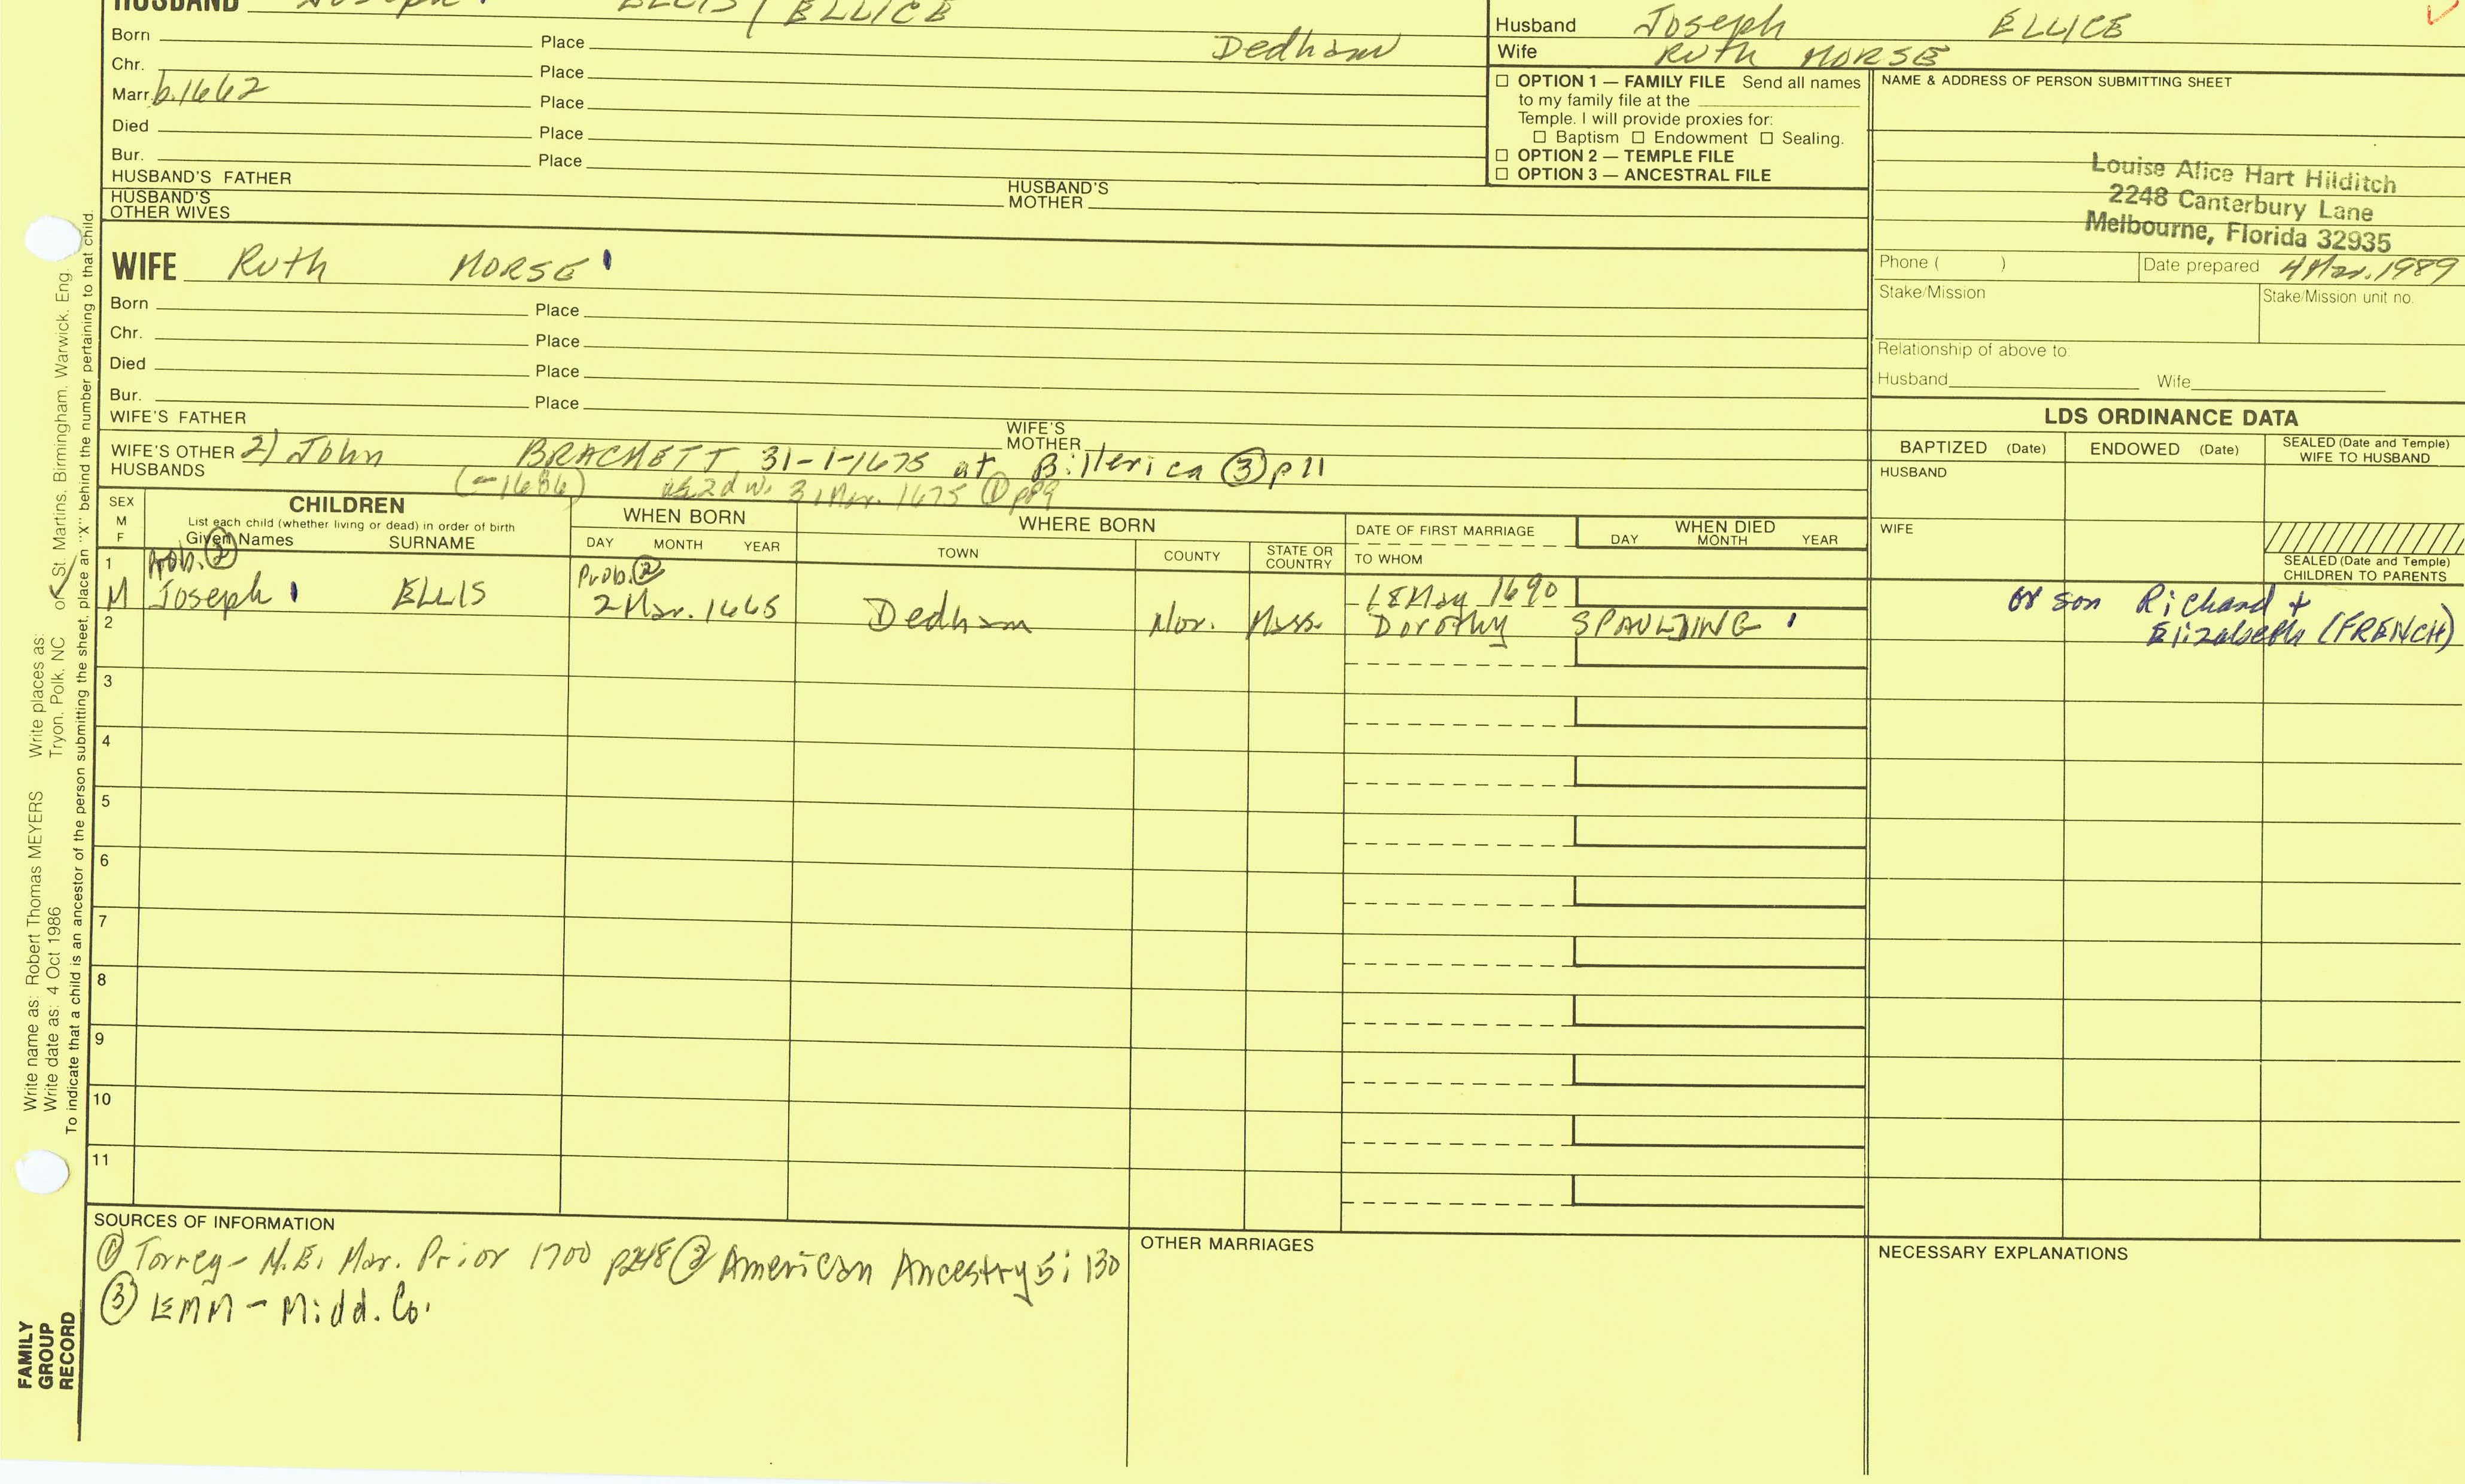 HUSBAND Joseph ELLIS / ELLICE
Born Place Dedham
Chr. Place
Marr. b.1662 Place
Died Place
Bur. Place
HUSBAND'S FATHER HUSBAND'S MOTHER
HUSBAND'S OTHER WIVES
Husband Joseph ELLICE
Wife Ruth MORSE
☐ OPTION 1 — FAMILY FILE Send all names
to my family file at the
Temple. I will provide proxies for:
☐ Baptism ☐ Endowment ☐ Sealing.
☐ OPTION 2 — TEMPLE FILE
☐ OPTION 3 — ANCESTRAL FILE
NAME & ADDRESS OF PERSON SUBMITTING SHEET
Louise Alice Hart Hilditch
2248 Canterbury Lane
Melbourne, Florida 32935
Phone ( ) Date prepared 4 Mar. 1989
Stake/Mission Stake/Mission unit no.
Relationship of above to:
Husband Wife
WIFE Ruth MORSE
Born Place
Chr. Place
Died Place
Bur. Place
WIFE'S FATHER WIFE'S MOTHER
WIFE'S OTHER HUSBANDS 2) John BRACKETT, 31-1-1675 at Billerica ③ p11
(-1686) as 2d w. 31 Mar. 1675 ① p89
LDS ORDINANCE DATA
BAPTIZED (Date) ENDOWED (Date) SEALED (Date and Temple) WIFE TO HUSBAND
HUSBAND
WIFE
SEALED (Date and Temple) CHILDREN TO PARENTS
SEX M F
CHILDREN
List each child (whether living or dead) in order of birth
Given Names SURNAME
WHEN BORN
DAY MONTH YEAR
WHERE BORN
TOWN COUNTY STATE OR COUNTRY
DATE OF FIRST MARRIAGE
TO WHOM
WHEN DIED
DAY MONTH YEAR
1 Prob. ② Prob. ②
M Joseph ELLIS 2 Mar. 1665 Dedham Nor. Mass. 18 May 1690
Dorothy SPAULDING
or son Richard +
Elizabeth (FRENCH)
2
3
4
5
6
7
8
9
10
11
SOURCES OF INFORMATION
① Torrey - N.E. Mar. Prior 1700 p248 ② American Ancestry 5: 130
③ EMM - Midd. Co.
OTHER MARRIAGES
NECESSARY EXPLANATIONS
FAMILY
GROUP
RECORD
Write name as: Robert Thomas MEYERS Write places as:
Write date as: 4 Oct 1986 Tryon, Polk, NC or St. Martins, Birmingham, Warwick, Eng.
To indicate that a child is an ancestor of the person submitting the sheet, place an "X" behind the number pertaining to that child.